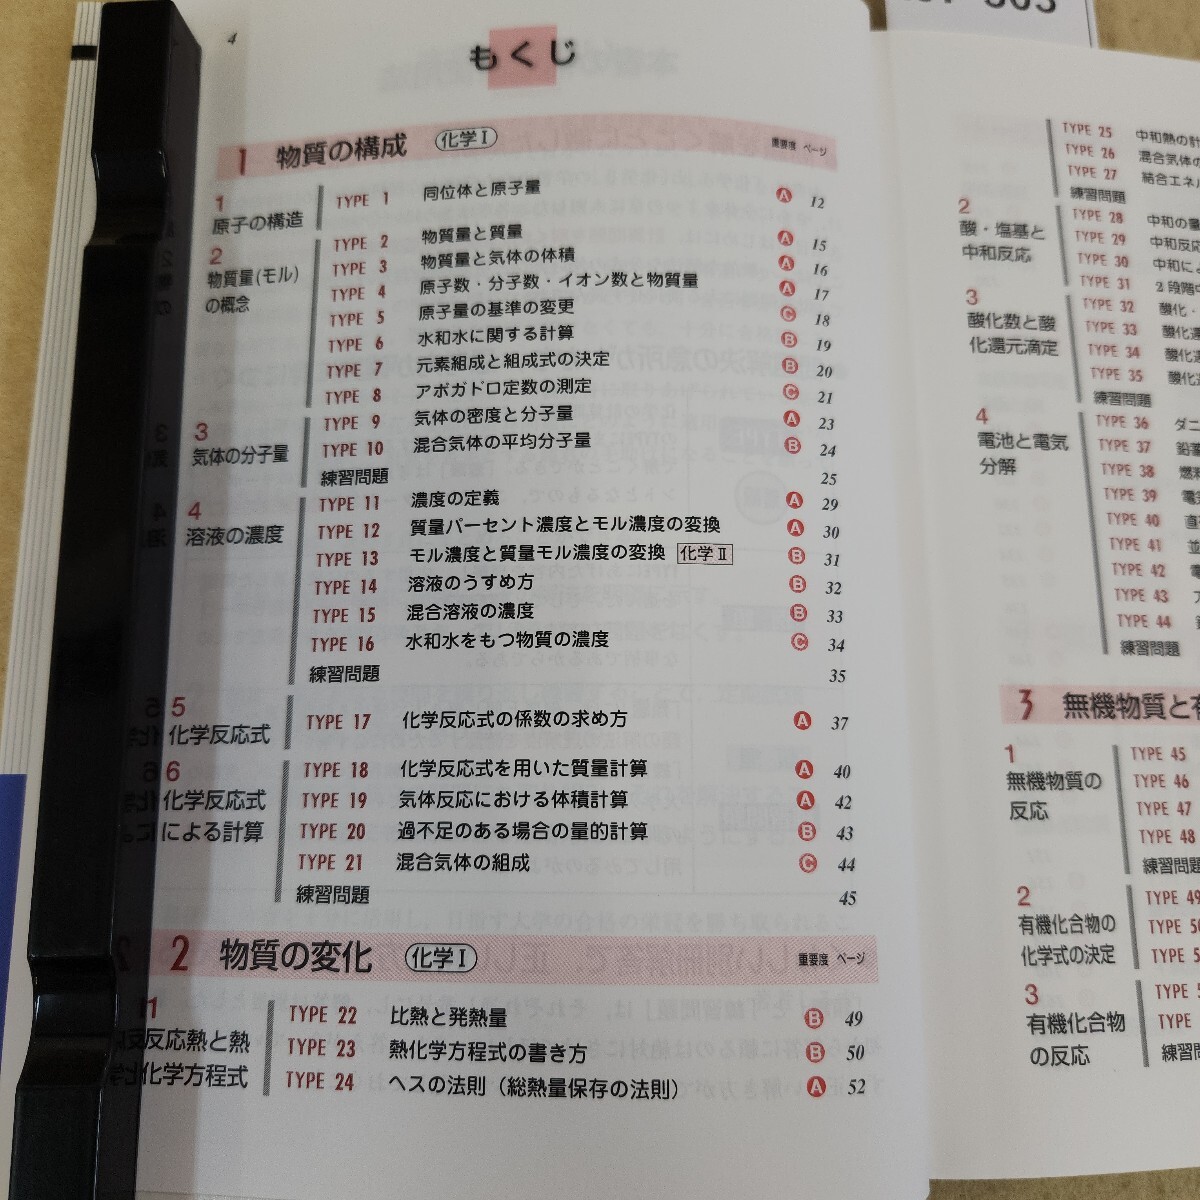 4
もくじ
1 物質の構成 化学Ⅰ 重要度 ページ
1
原子の構造
TYPE 1 同位体と原子量 A 12
2
物質量(モル)
の概念
TYPE 2 物質量と質量 A 15
TYPE 3 物質量と気体の体積 A 16
TYPE 4 原子数・分子数・イオン数と物質量 A 17
TYPE 5 原子量の基準の変更 C 18
TYPE 6 水和水に関する計算 B 19
TYPE 7 元素組成と組成式の決定 B 20
TYPE 8 アボガドロ定数の測定 C 21
3
気体の分子量
TYPE 9 気体の密度と分子量 A 23
TYPE 10 混合気体の平均分子量 B 24
練習問題 25
4
溶液の濃度
TYPE 11 濃度の定義 A 29
TYPE 12 質量パーセント濃度とモル濃度の変換 A 30
TYPE 13 モル濃度と質量モル濃度の変換 化学Ⅱ B 31
TYPE 14 溶液のうすめ方 B 32
TYPE 15 混合溶液の濃度 B 33
TYPE 16 水和水をもつ物質の濃度 C 34
練習問題 35
5
化学反応式
TYPE 17 化学反応式の係数の求め方 A 37
6
化学反応式
による計算
TYPE 18 化学反応式を用いた質量計算 A 40
TYPE 19 気体反応における体積計算 A 42
TYPE 20 過不足のある場合の量的計算 B 43
TYPE 21 混合気体の組成 C 44
練習問題 45
2 物質の変化 化学Ⅰ 重要度 ページ
1
反応熱と熱
化学方程式
TYPE 22 比熱と発熱量 B 49
TYPE 23 熱化学方程式の書き方 B 50
TYPE 24 ヘスの法則（総熱量保存の法則） A 52
TYPE 25 中和熱の計
TYPE 26 混合気体の
TYPE 27 結合エネル
練習問題
2
酸・塩基と
中和反応
TYPE 28 中和の量
TYPE 29 中和反応
TYPE 30 中和によ
TYPE 31 2段階中
3
酸化数と酸
化還元滴定
TYPE 32 酸化・
TYPE 33 酸化還
TYPE 34 酸化還
TYPE 35 酸化還
練習問題
4
電池と電気
分解
TYPE 36 ダニ
TYPE 37 鉛蓄
TYPE 38 燃料
TYPE 39 電
TYPE 40 直
TYPE 41 並
TYPE 42 電
TYPE 43
TYPE 44
練習問題
3 無機物質と有
1
無機物質の
反応
TYPE 45
TYPE 46
TYPE 47
TYPE 48
練習問題
2
有機化合物の
化学式の決定
TYPE 49
TYPE 50
TYPE 5
3
有機化合物
の反応
TYPE 5
TYPE
練習問